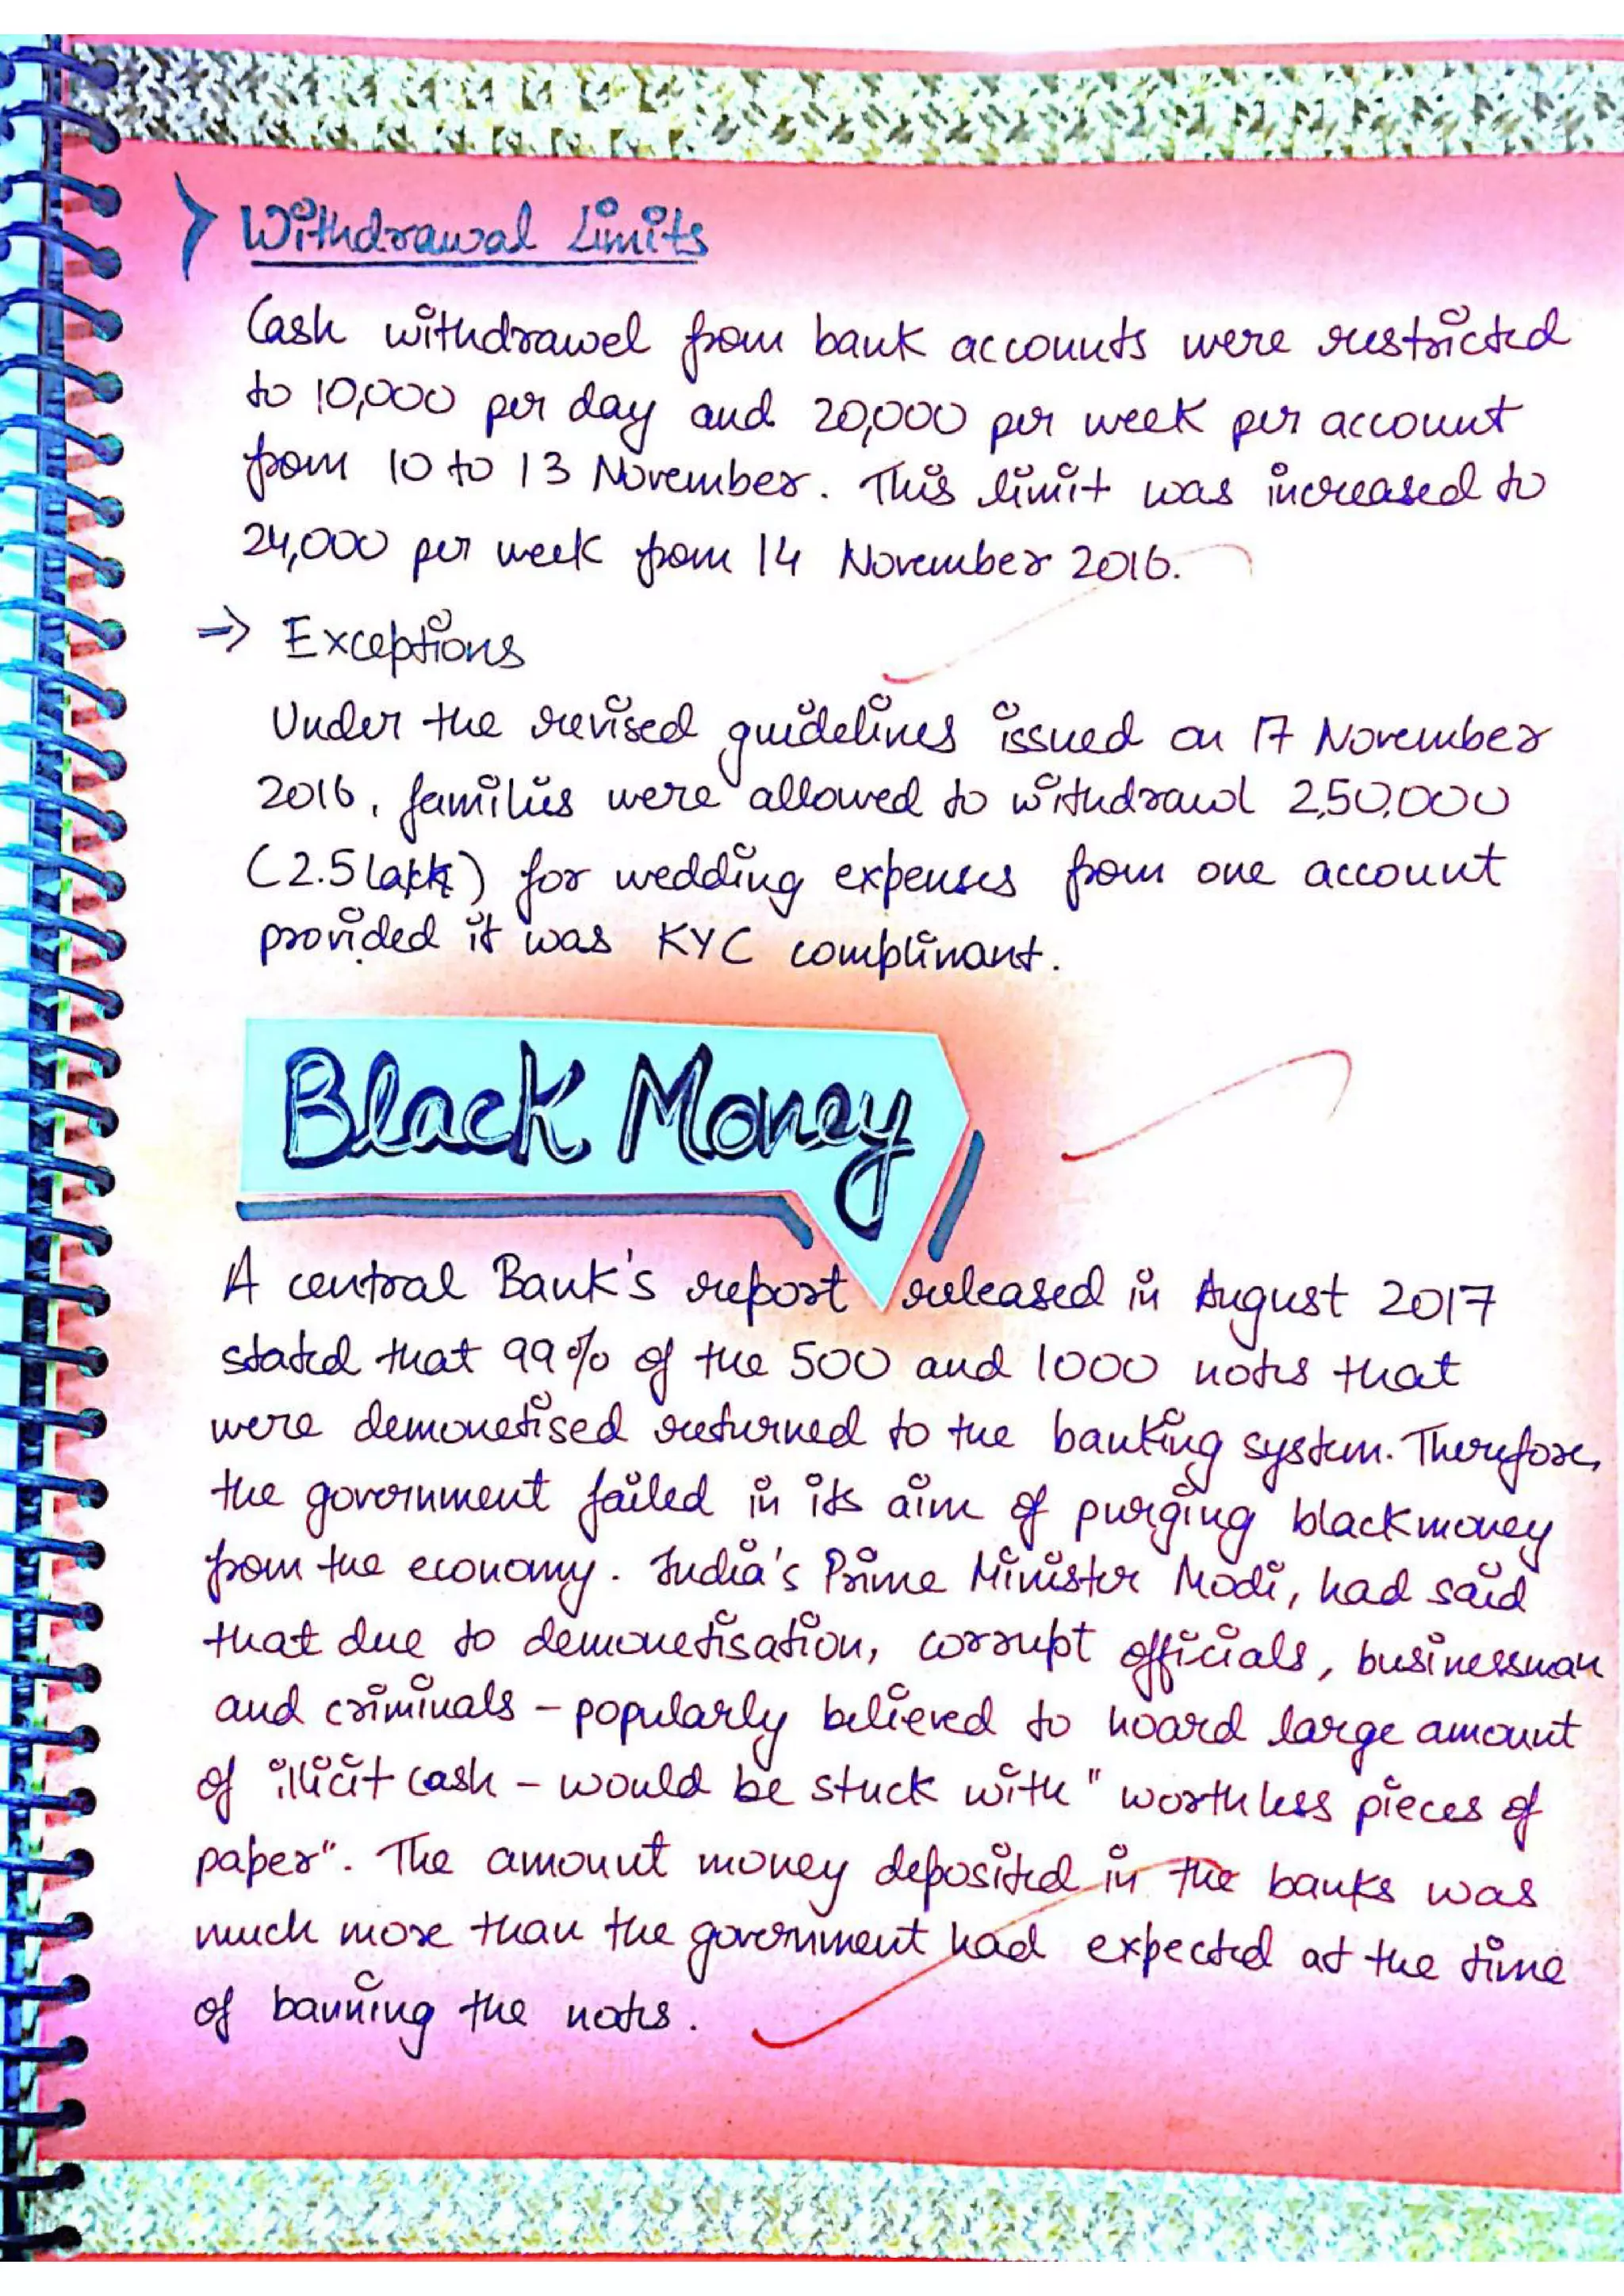 Withdrawal Limits
Cash withdrawel from bank accounts were restricted
to 10,000 per day and 20,000 per week per account
from 10 to 13 November. This limit was increased to
24,000 per week from 14 November 2016.
⇒ Exceptions
Under the revised guidelines issued on 17 November
2016, families were allowed to withdrawl 2,50,000
(2.5 lakh) for wedding expenses from one account
provided it was KYC complinant.
Black Money
A central Bank's report released in August 2017
stated that 99% of the 500 and 1000 notes that
were demonetised returned to the banking system. Therefore,
the government failed in its aim of purging blackmoney
from the economy. India's Prime Minister Modi, had said
that due to demonetisation, corrupt officials, businessman
and criminals – popularly believed to hoard large amount
of illicit cash – would be stuck with "worthless pieces of
paper". The amount money deposited in the banks was
much more than the government had expected at the time
of banning the notes.